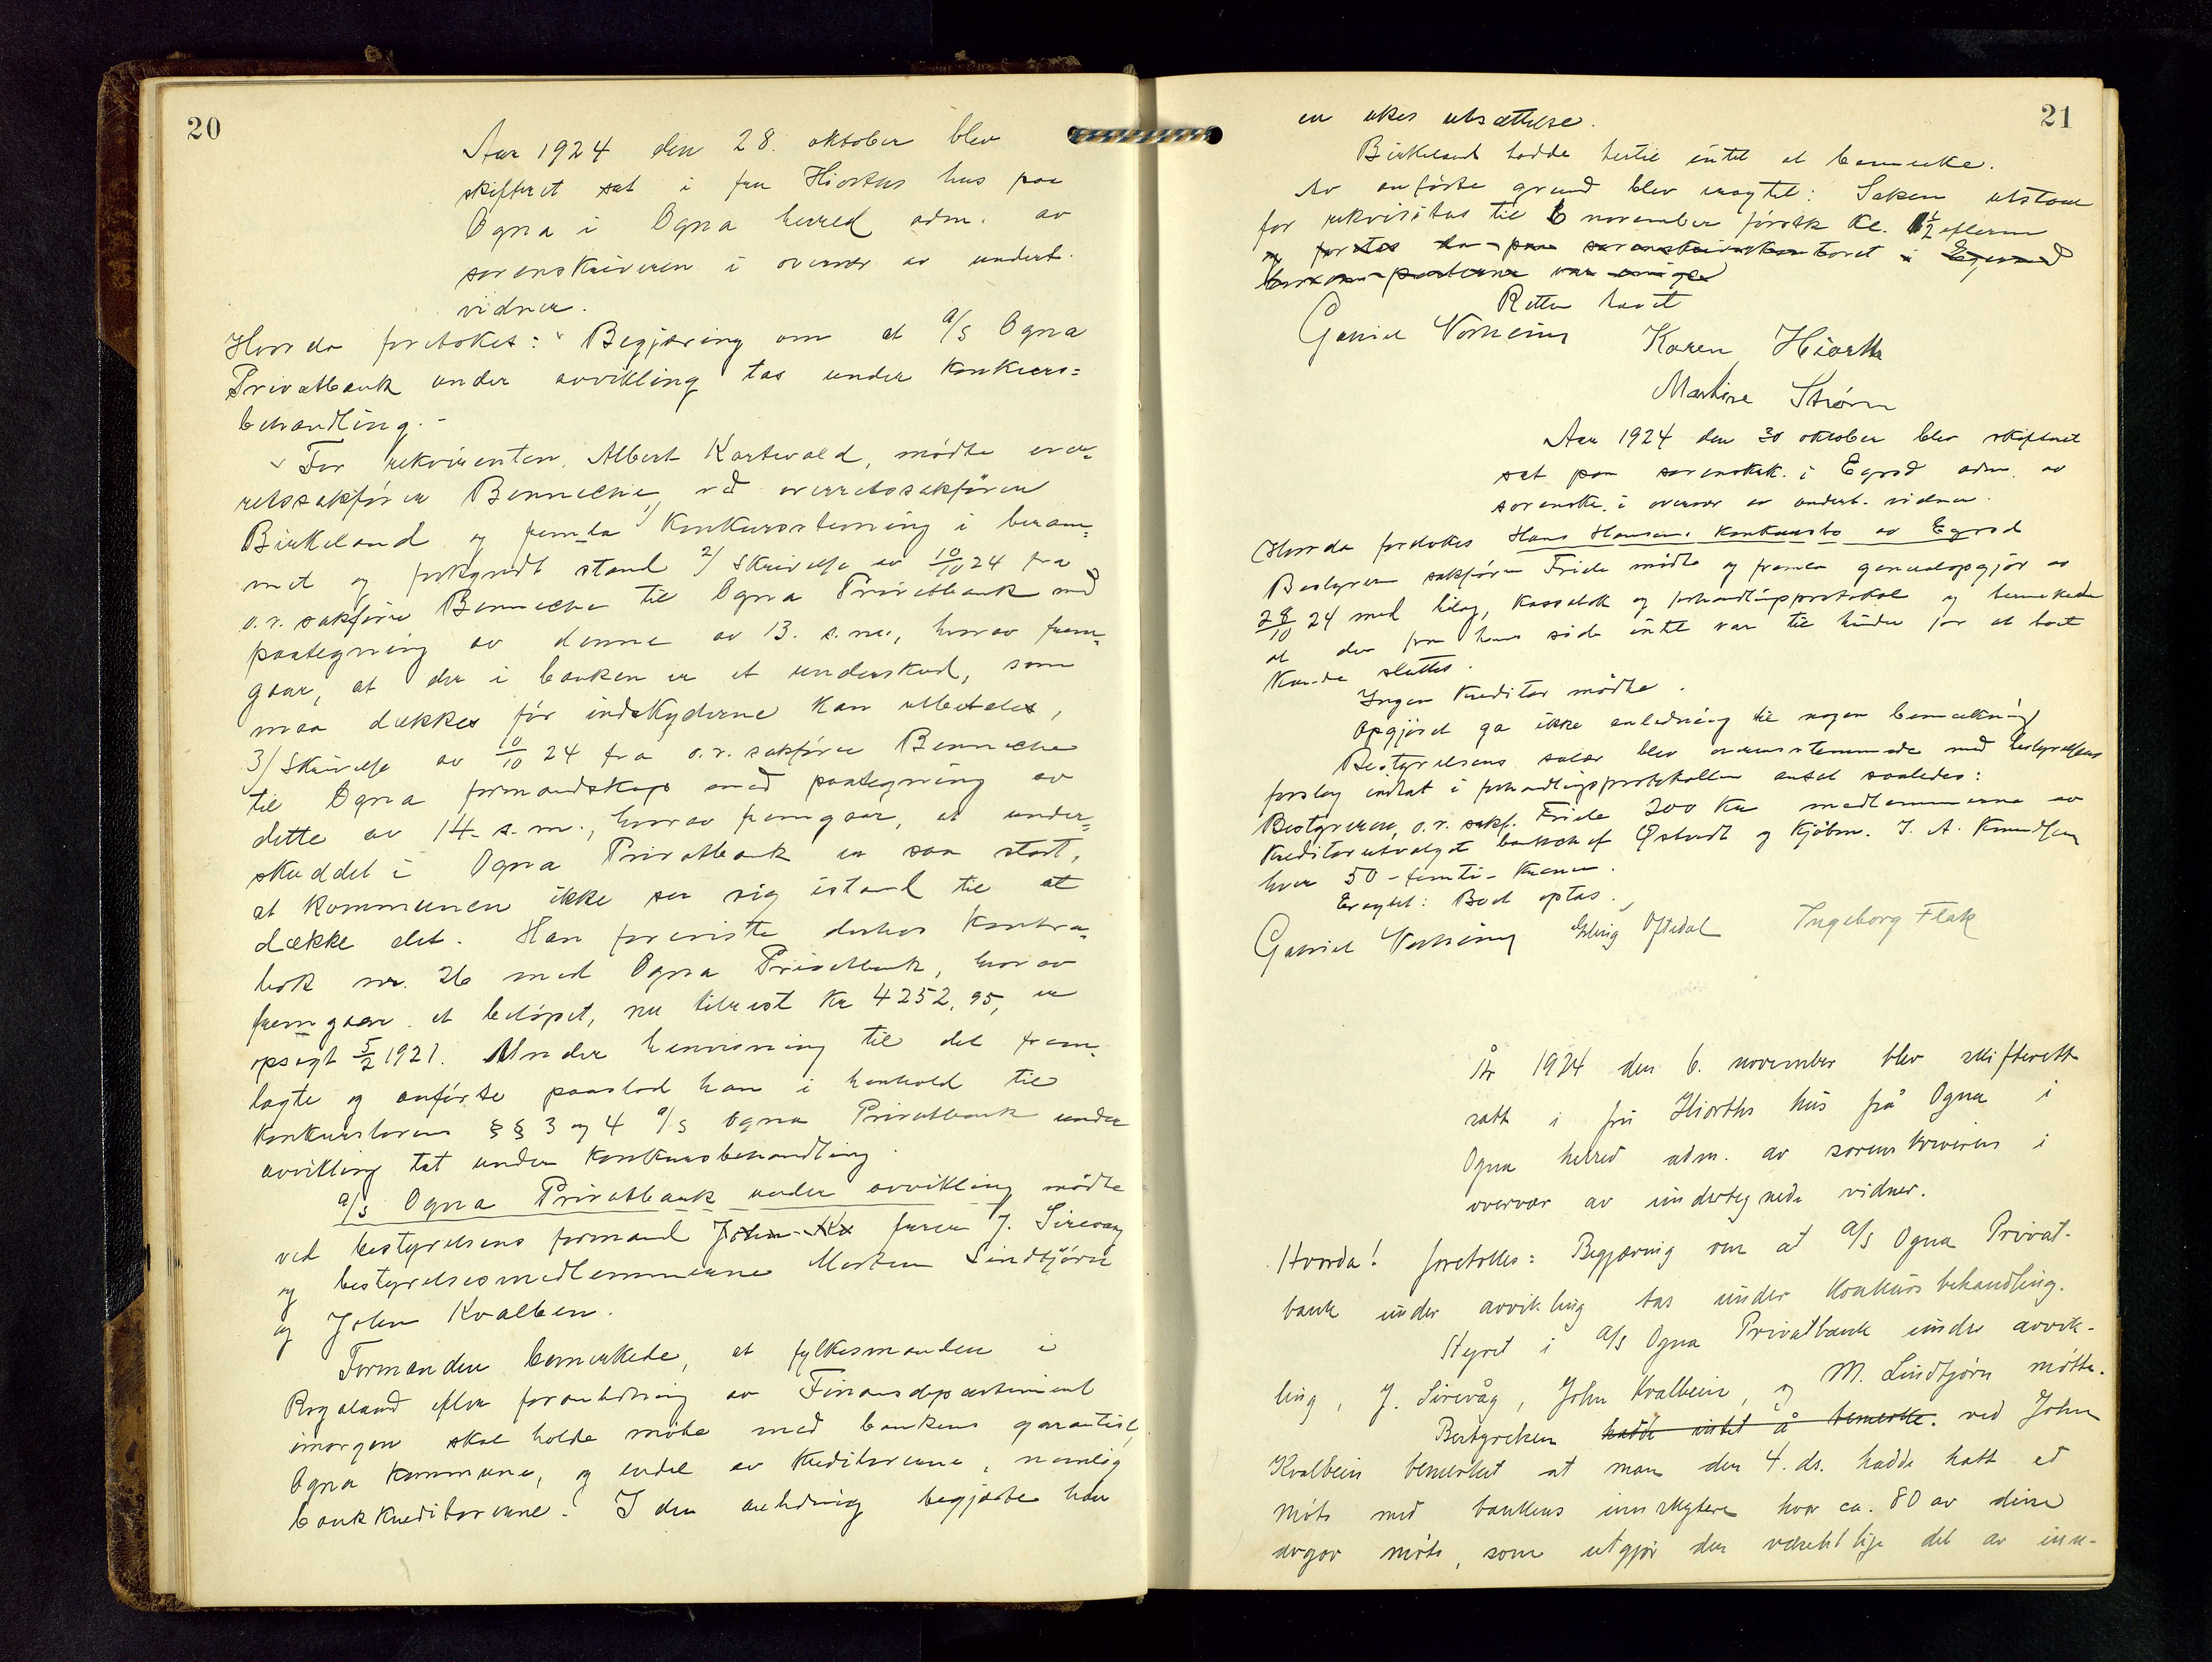 20
Aar 1924 den 28. oktober blev
skifteret sat i fru Hiorths hus paa
Ogna i Ogna herred adm. av
sorenskriveren i overvær av undert.
vidner.
Hvor da foretokes: Begjæring om at A/S Ogna
Privatbank under avvikling tas under konkurs=
behandling. -
For rekvirenten, Albert Kartevold, mødte over=
retssakfører Bennecke, ved overretssakfører
Birkeland og femla 1/ konkursstevning i beram=
met og forkyndt stand 2/ Skrivelse av 10/10 24 fra
o.r. sakfører Bennecke til Ogna Privatbank med
paategning av denne av 13. s.m., hvorav frem=
gaar, at der i banken er et underskud, som
maa dækkes før indskyderne kan utbetales,
3/ Skrivelse av 10/10 24 fra o.r. sakfører Bennecke
til Ogna formandskap med paategning av
dette av 14. s.m., hvorav fremgaar, at under=
skuddet i Ogna Privatbank er saa stort,
at kommunen ikke ser sig istand til at
dække det. Han foreviste derhos kontra=
bok nr. 26 med Ogna Privatbank, hvorav
fremgaar at beløpet, nu tilrest Kr 4252,95, er
opsagt 5/2 1921. Under henvisning til det frem=
lagte og anførte paastod han i henhold til
konkurslovens §§ 3 og 4 A/S Ogna Privatbank under
avvikling tat under konkursbehandling.
A/S Ogna Privatbank under avvikling mødte
ved bestyrelsens formand John Kv furer J. Sirevaag
og bestyrelsesmedlemmerne Morten Lindtjørn
og John Kvalbein.
Formanden bemerkede, at fylkesmanden i
Rogaland efter foranledning av Finansdepartement
imorgen skal holde møte med bankens garantist,
Ogna kommune, og endel av kreditorerne, nemlig
bankkreditorerne. I den anledning begjærte han
21
en ukes utsættelse.
Birkeland hadde hertil intet at bemerke.
Av anførte grund blev eragtet: Saken utstaar
for rekvisitus til 6 november førstk kl. 1 1/2 efterm
og foretas da paa sorenskriverkontoret i Egersund
hvorom parterne var enige
Retten hævet
Gabriel Vorheim Karen Hiorth
Martine Strøm
Aar 1924 den 30 oktober blev skifteret
sat paa sorenskrk. i Egrsd adm. av
sorenskr. i overvær av undert. vidner.
Hvor da foretokes Hans Hansens konkursbo av Egrsd
Bestyreren sakfører Friele mødte og fremla generalopgjør av
28/10 24 med bilag, kassabok og forhandlingsprotokol og bemerkede
at der fra hans side intet var til hinder for at boet
kunde sluttes.
Ingen kreditor mødte.
Opgjøret ga ikke anledning til nogen bemerkning
Bestyrelsens salær blev overensstemmede med bestyrelsens
forslag indtat i forhandlingsprotokollen ansat saaledes:
Bestyreren, o.r. sakf. Friele 200 Kr medlemmerne av
kreditorutvalget banksjef Østvedt og kjøbm. J. A. Knudsen
hver 50 - femti - Kroner.
Eragtet: Boet optas.
Gabriel Vorheim Erling Oftedal Ingeborg Flak
År 1924 den 6. november blev skifterett
satt i fru Hiorths hus på Ogna i
Ogna herred adm. av sorenskriveren i
overvær av undertegnede vidner.
Hvorda! foretokes: Begjæring om at A/S Ogna Privat-
bank under avvikling tas under konkursbehandling.
Styret i A/S Ogna Privatbank under avvik-
ling, J. Sirevåg, John Kvalbein, og M. Lindtjørn møtte.
Bestyrelsen hadde intet å bemerke. ved John
Kvalbein bemerket at man den 4. ds. hadde hatt et
møte med bankens innskytere hvor ca. 80 av disse
avgav møte, som utgjør den vesentlige del av inn-